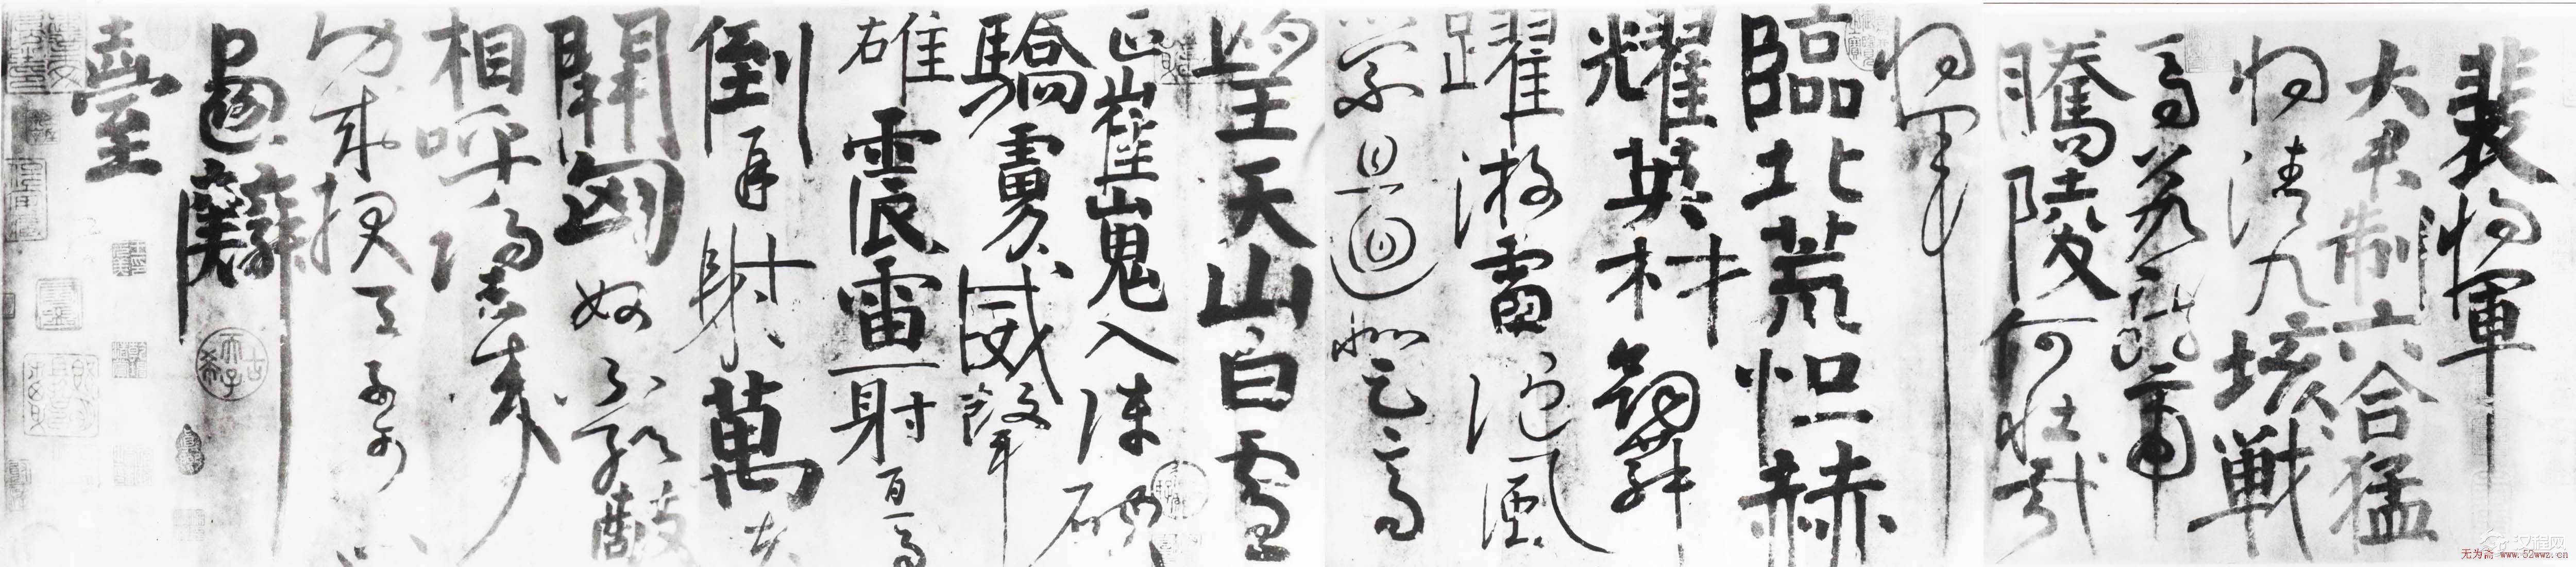 裴將軍
大君制六合猛
將清九垓戰
馬若龍虎
騰陵何壯哉
將軍
臨北荒烜赫
耀英材劍舞
躍游電隨風
縈且迴登高
望天山白雪
正崔嵬入陣破
驕虜威聲
雄震雷一射百馬
倒再射萬夫
開匈奴不敢敵
相呼歸去來
功成報天子可以
畫麟
臺
古希天子
汉程网
无为斋 www.52wwz.cn